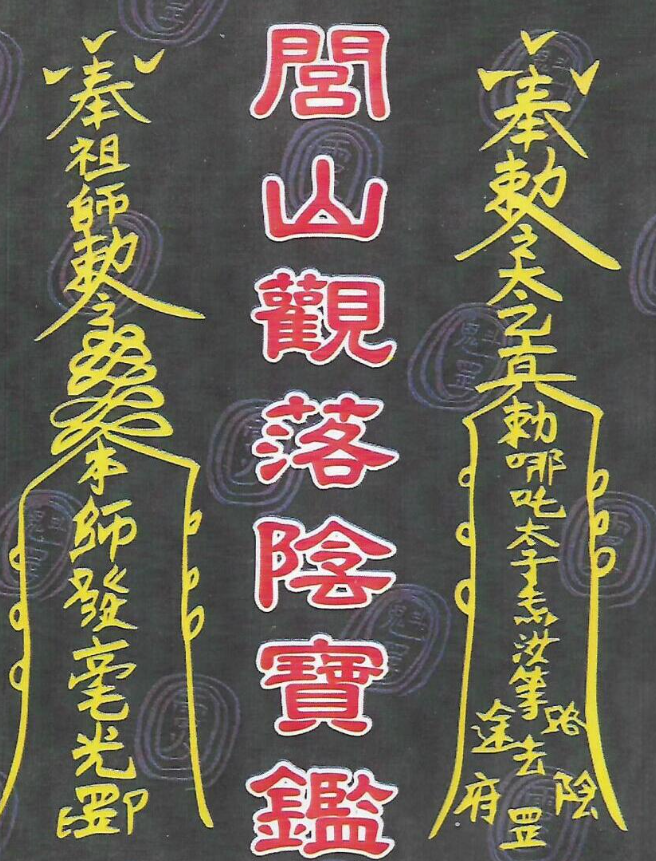 奉敕
真敕哪吒太子
路途去陰府罡
閭山觀落陰寶鑑
奉祖師敕
本師發毫光罡印